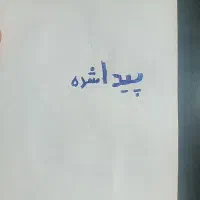 پیدا شده